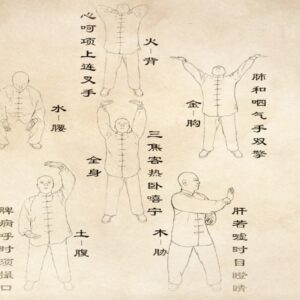 肺和呬气手双擎
金-胸
火-背
心呵项上连叉手
水-腰
肝若嘘时目瞪睛
木-胁
三焦客热卧嘻宁
全身
土-腹
脾病呼时须撮口